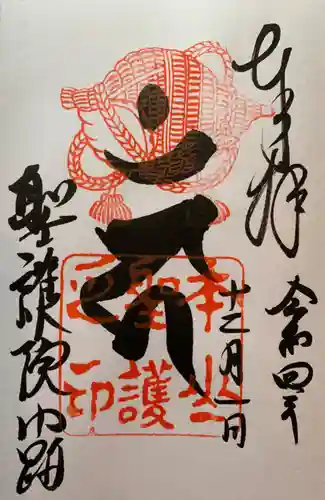 奉拝
令和四年
十二月一日
聖護院門跡
本山
聖護
之印